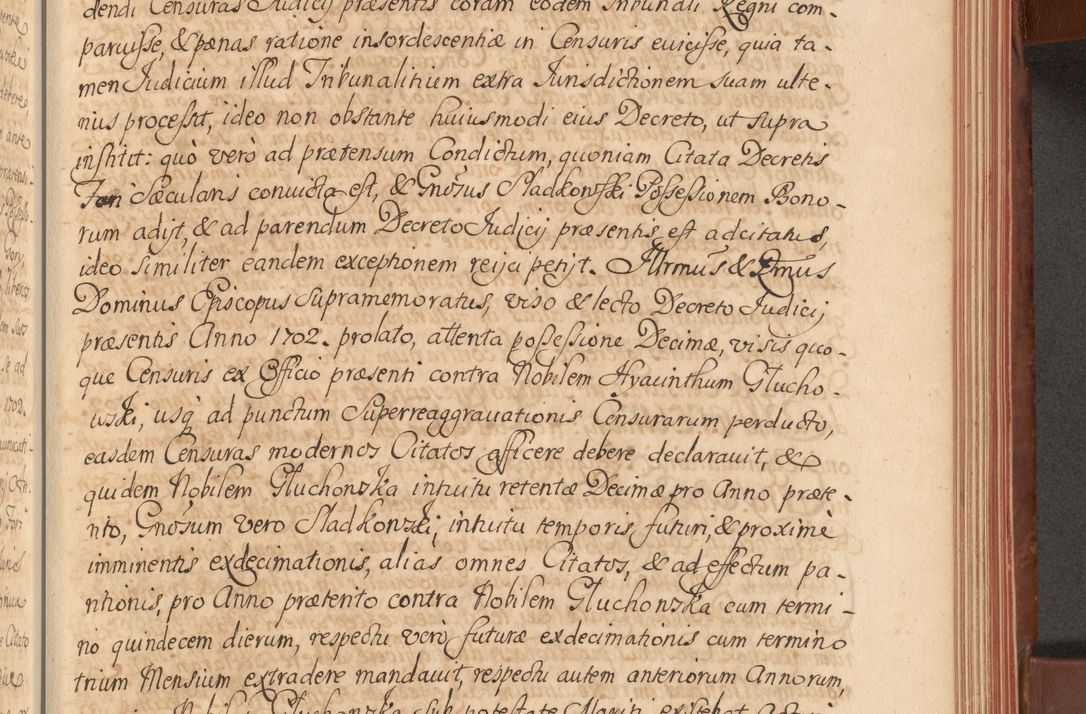 dendi Censuras Judicij præsentis coram eodem Tribunali Regni com-
paruisse, & pænas ratione insordescentiæ in Censuris euicisse, quia ta-
men Judicium illud Tribunalitium extra Jurisdictionem suam ulte-
rius processit, ideo non obstante huiusmodi eius Decreto, ut supra
institit: quò verò ad prætensum Condictum, quoniam Citata Decretis
Fori Sæcularis convicta est, & Gnõsus Sladkowski Possessionem Bono-
rum adijt, & ad parendum Decreto Judicij præsentis est adcitatus,
ideo similiter eandem exceptionem reijci petijt. Illrmus & Rmus
Dominus Episcopus supramemoratus, viso & lecto Decreto Judicij
præsentis Anno 1702. prolato, attenta possessione Decimæ, visis quo-
que Censuris ex Officio præsenti contra Nobilem Hyacinthum Głucho
wski, usq ad punctum Superreaggrauationis Censurarum perducto,
easdem Censuras modernos Citatos afficere debere declarauit, &
quidem Nobilem Głuchowska intuitu retentæ Decimæ pro Anno præte-
rito, Gnõsum vero Sladkowski, intuitu temporis futuri, & proximè
imminentis exdecimationis, alias omnes Citatos, & ad effectum pa-
ritionis, pro Anno præterito contra Nobilem Głuchowska cum termi-
no quindecem dierum, respectu verò futuræ exdecimationis cum termino
trium Mensium extradere mandauit, respectu autem anteriorum Annorum,
Głuchowska sub potestate Mariti